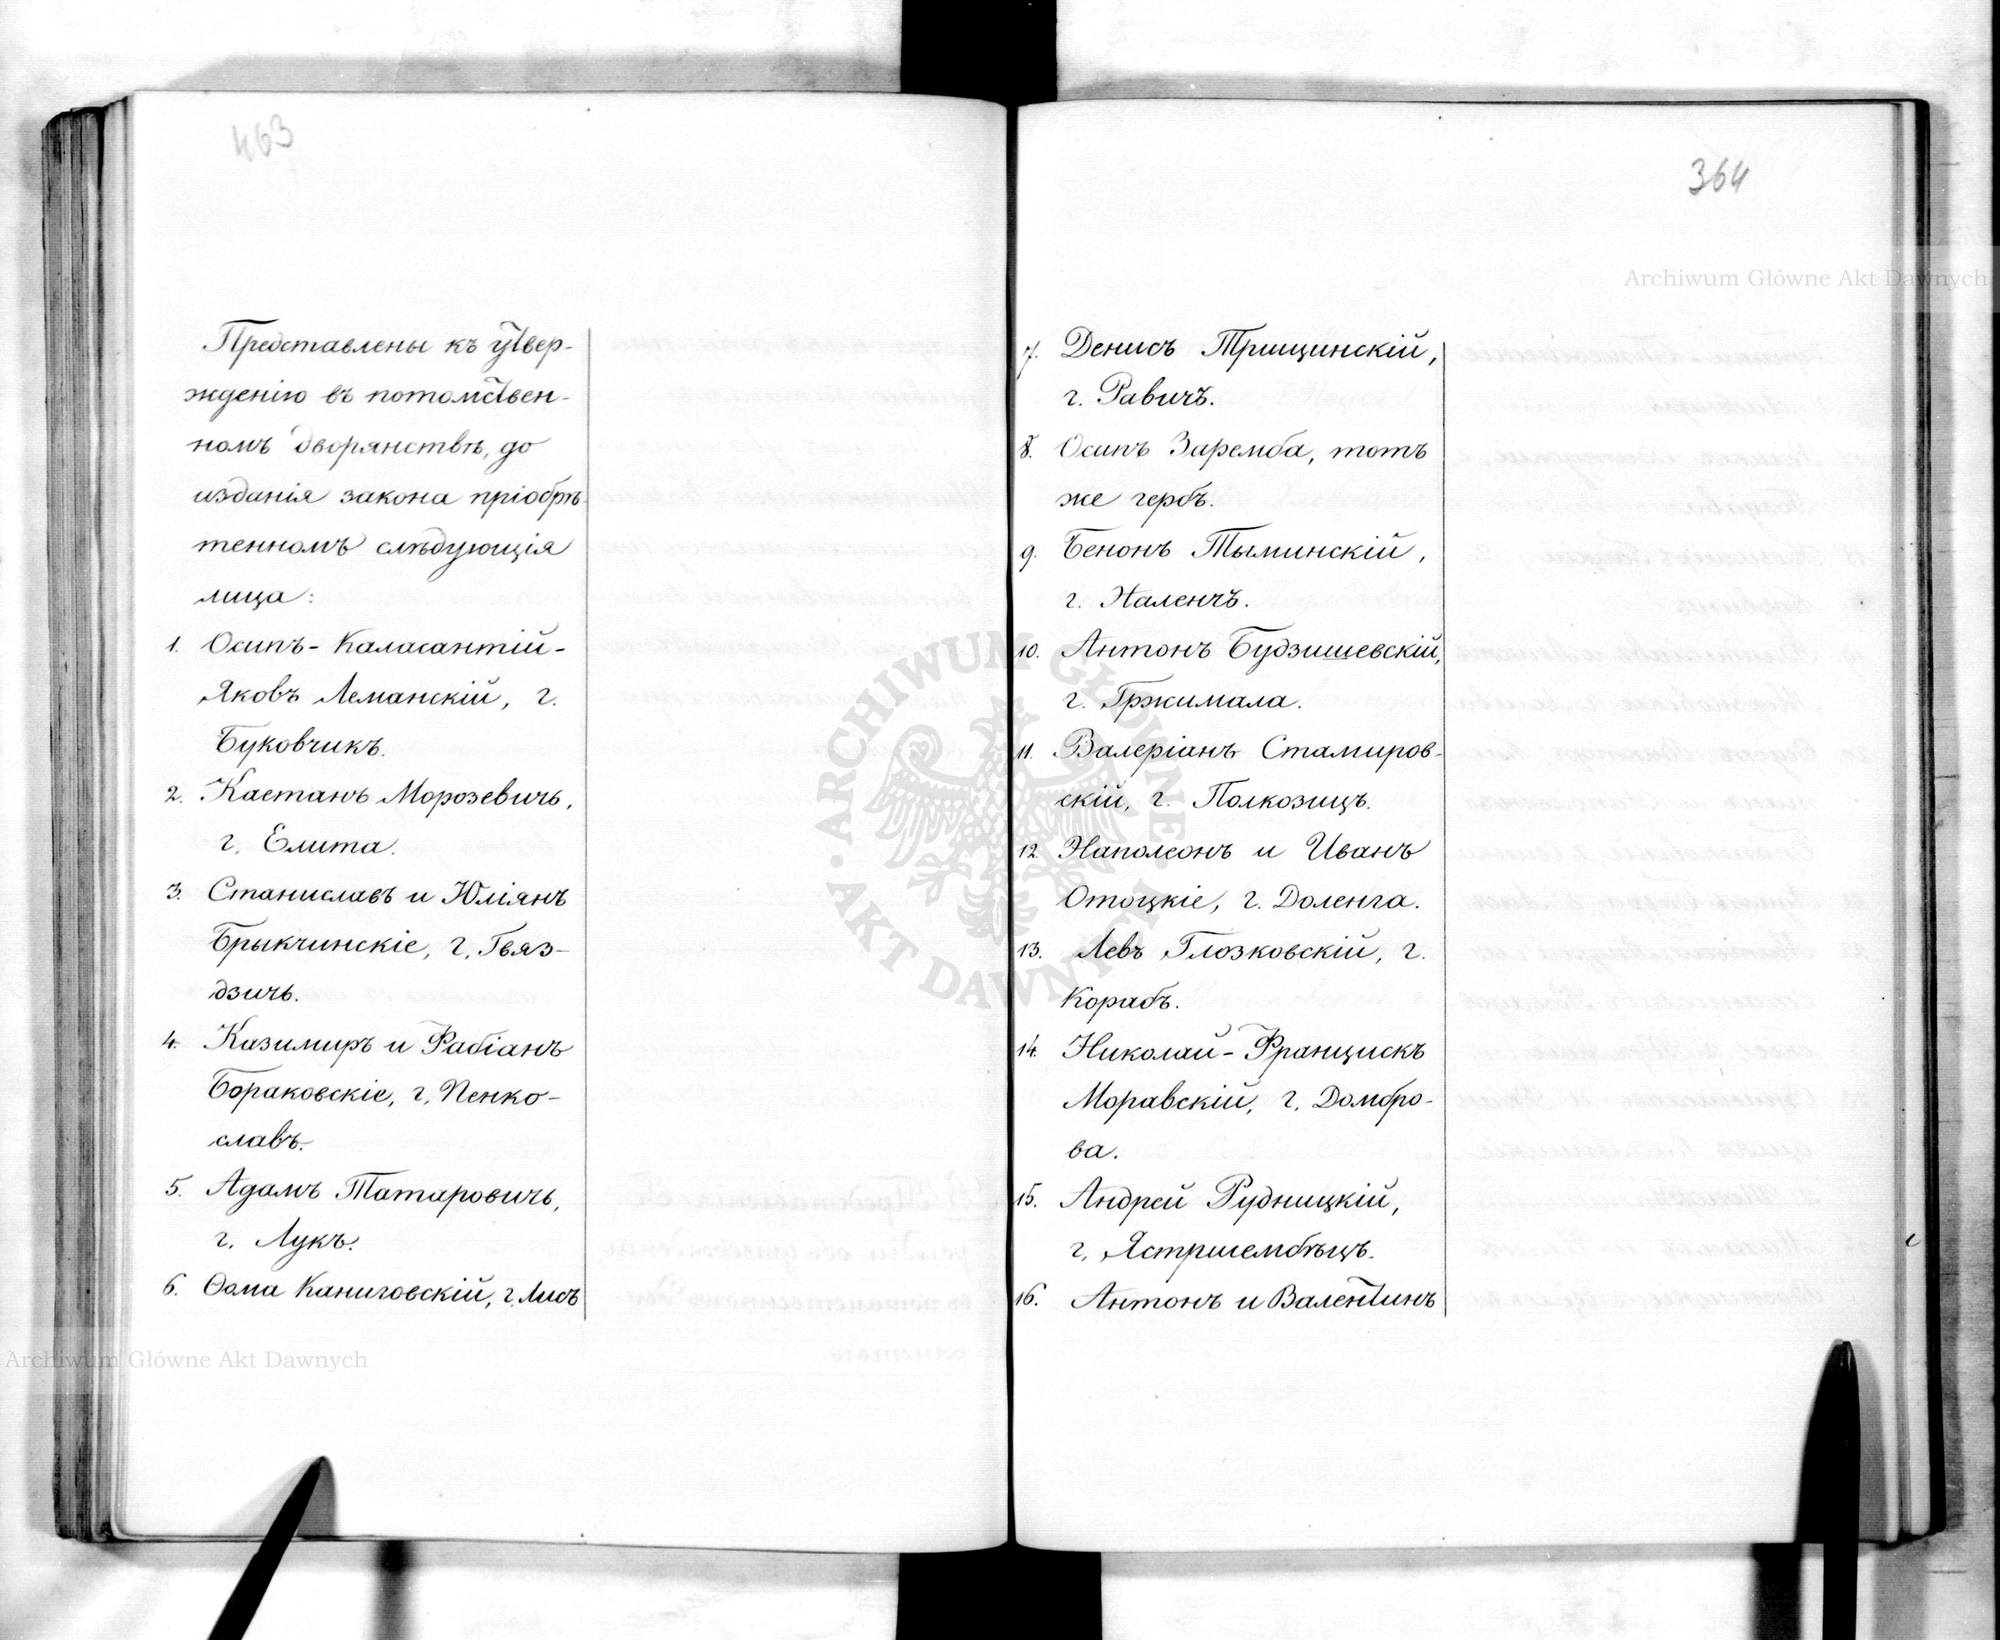 463
Представлены къ утвер-
жденію въ потомствен-
номъ дворянствѣ, до
изданія закона пріобрѣ
тенномъ слѣдующія
лица:
1. Осипъ-Каласантій-
Яковъ Леманскій, г.
Буковчикъ.
2. Каетанъ Морозевичъ,
г. Елита.
3. Станиславъ и Юліянъ
Брыкчинскіе, г. Гвяз-
дзичъ.
4. Казимиръ и Фабіанъ
Бораковскіе, г. Пенко-
славъ.
5. Адамъ Татаровичъ,
г. Лукъ.
6. Ѳома Каниговскій, г. Лисъ
364
Archiwum Główne Akt Dawnych
7. Денисъ Трищинскій,
г. Равичъ.
8. Осипъ Заремба, тотъ
же гербъ.
9. Бенонъ Тыминскій,
г. Наленчъ.
10. Антонъ Будзишевскій,
г. Гржимала.
11. Валеріанъ Стамиров-
скій, г. Полкозицъ.
12. Наполеонъ и Иванъ
Отоцкіе, г. Доленга.
13. Левъ Глозковскій, г.
Корабъ.
14. Николай-Францискъ
Моравскій, г. Домбро-
ва.
15. Андрей Рудницкій,
г. Ястршембѣцъ.
16. Антонъ и Валентинъ
ARCHIWUM GŁÓWNE AKT DAWNYCH
Archiwum Główne Akt Dawnych